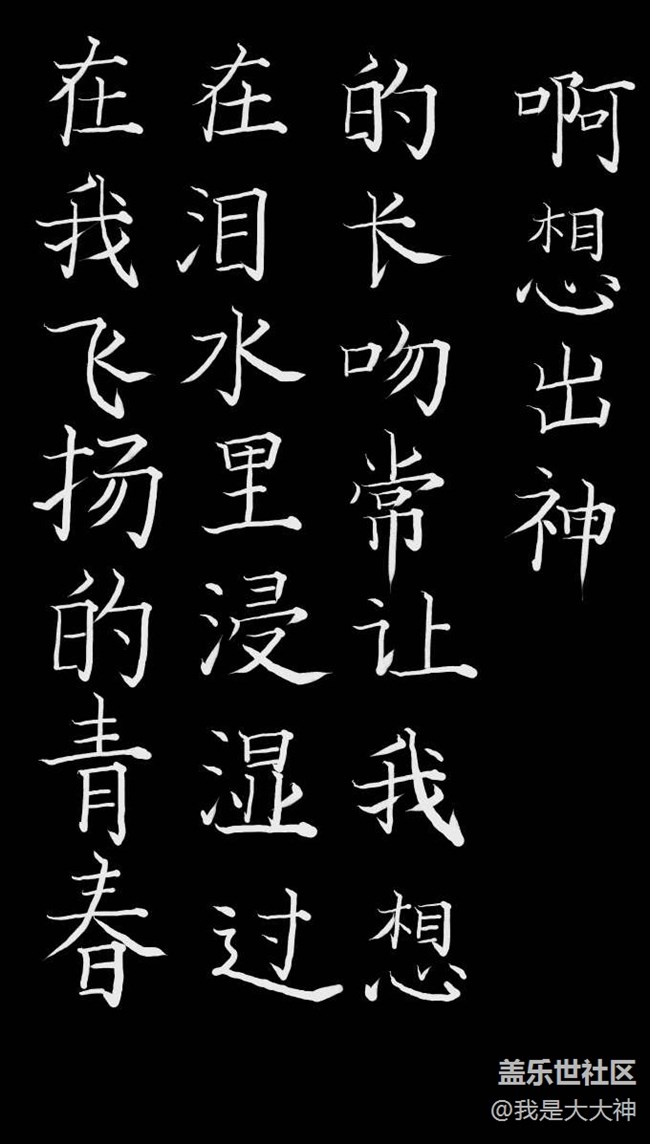 在我飞扬的青春
在泪水里浸湿过
的长吻常让我想
啊想出神
盖乐世社区
@我是大大神